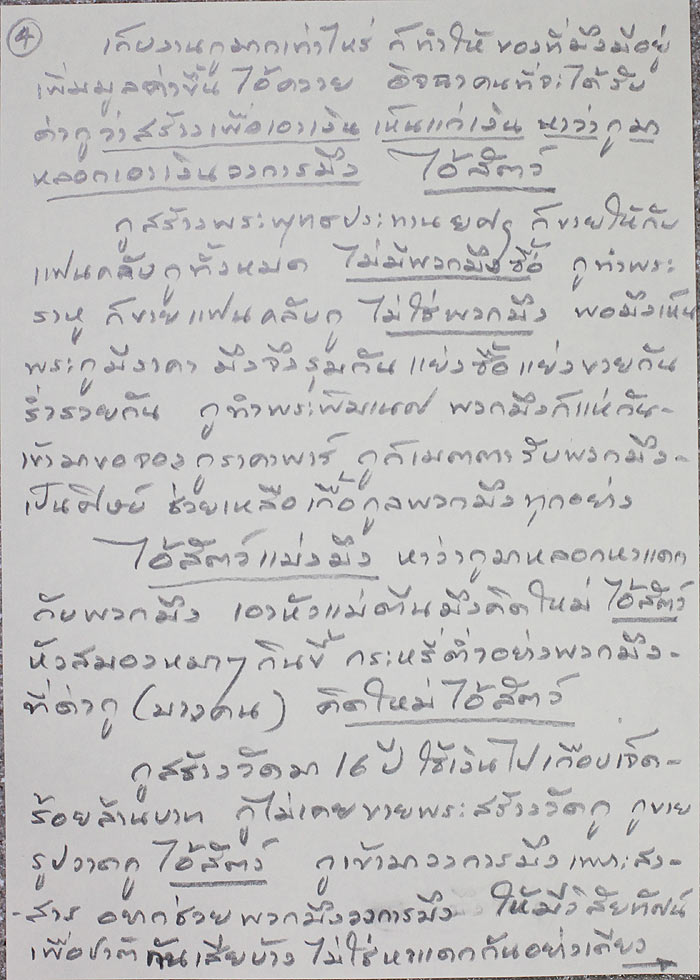 4
เก็บงานกูมากเท่าไหร่ ก็ทำให้ ของที่มึงมีอยู่
เพิ่มมูลค่าขึ้น ไอ้ควาย อิจฉาคนที่จะได้รับ
ด่ากูว่าสร้างเพื่อเอาเงิน เห็นแก่เงิน หาว่ากูมา
หลอกเอาเงินวงการมึง ไอ้สัตว์
กูสร้างพระพุทธประทานยศฯ ก็ขายให้กับ
แฟนคลับกูทั้งหมด ไม่มีพวกมึงซื้อ กูทำพระ
ราหู ก็ขายแฟนคลับกู ไม่ใช่พวกมึง พอมึงเห็น
พระกูมีราคา มึงจึงรุมกัน แย่งซื้อแย่งขายกัน
ร่ำรวยกัน กูทำพระพิฆเนศ พวกมึงก็แห่กัน-
เข้ามาขอจองกูราคาพาร์ กูก็เมตตารับพวกมึง-
เป็นศิษย์ ช่วยเหลือเกื้อกูลพวกมึงทุกอย่าง
ไอ้สัตว์แม่งมึง หาว่ากูมาหลอกหาแดก
กับพวกมึง เอาหัวแม่ตีนมึงคิดใหม่ ไอ้สัตว์
หัวสมองหมาๆ กินขี้ กระหรี่ต่ำอย่างพวกมึง-
ที่ด่ากู (บางคน) คิดใหม่ ไอ้สัตว์
กูสร้างวัดมา 16 ปี ใช้เงินไปเกือบเจ็ด-
ร้อยล้านบาท กูไม่เคยขายพระสร้างวัดกู กูขาย
รูปวาดกู ไอ้สัตว์ กูเข้ามาวงการมึงเพราะสง-
-สาร อยากช่วยพวกมึงวงการมึง ให้มีวิสัยทัศน์
เพื่อชาติกันเสียบ้าง ไม่ใช่หาแดกกันอย่างเดียว